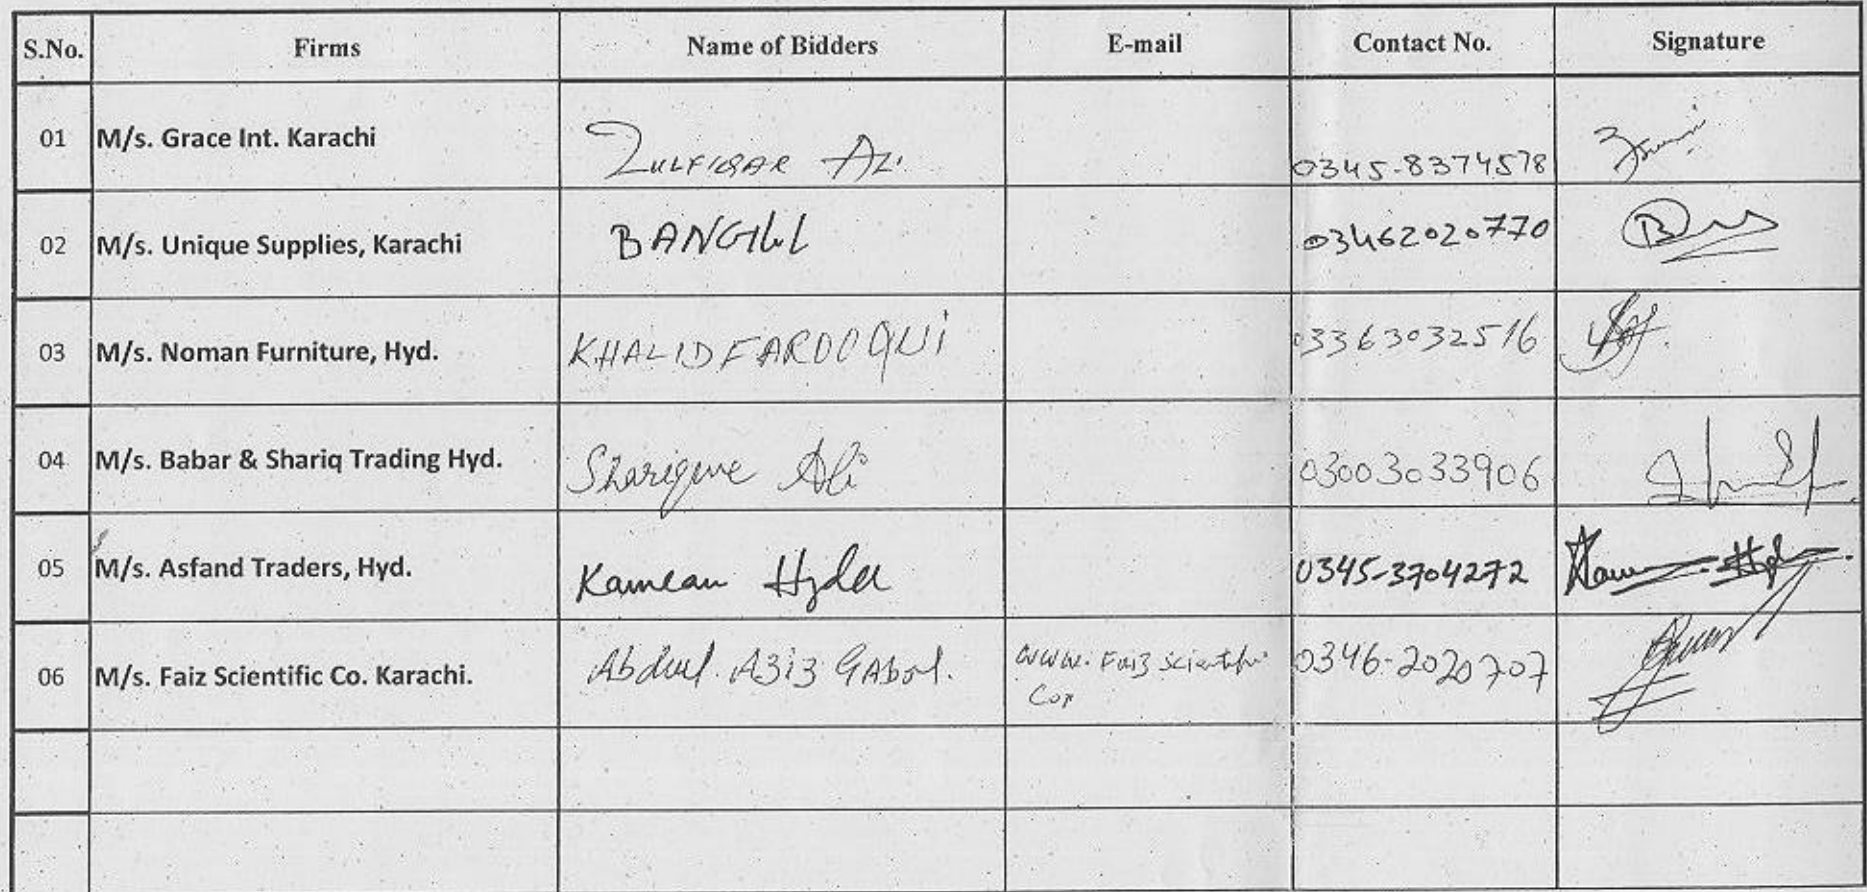 S.No. Firms Name of Bidders E-mail Contact No. Signature
01 M/s. Grace Int. Karachi ZULFIQAR ALI 0345-8374578
02 M/s. Unique Supplies, Karachi 03462020770
03 M/s. Noman Furniture, Hyd. KHALID FAROOQUI 03363032516
04 M/s. Babar & Shariq Trading Hyd. Sharique Ali 03003033906
05 M/s. Asfand Traders, Hyd. Kamran Hyder 0345-3704272
06 M/s. Faiz Scientific Co. Karachi. Abdul Aziz GAbol. www.Faiz scientific 0346-2020707